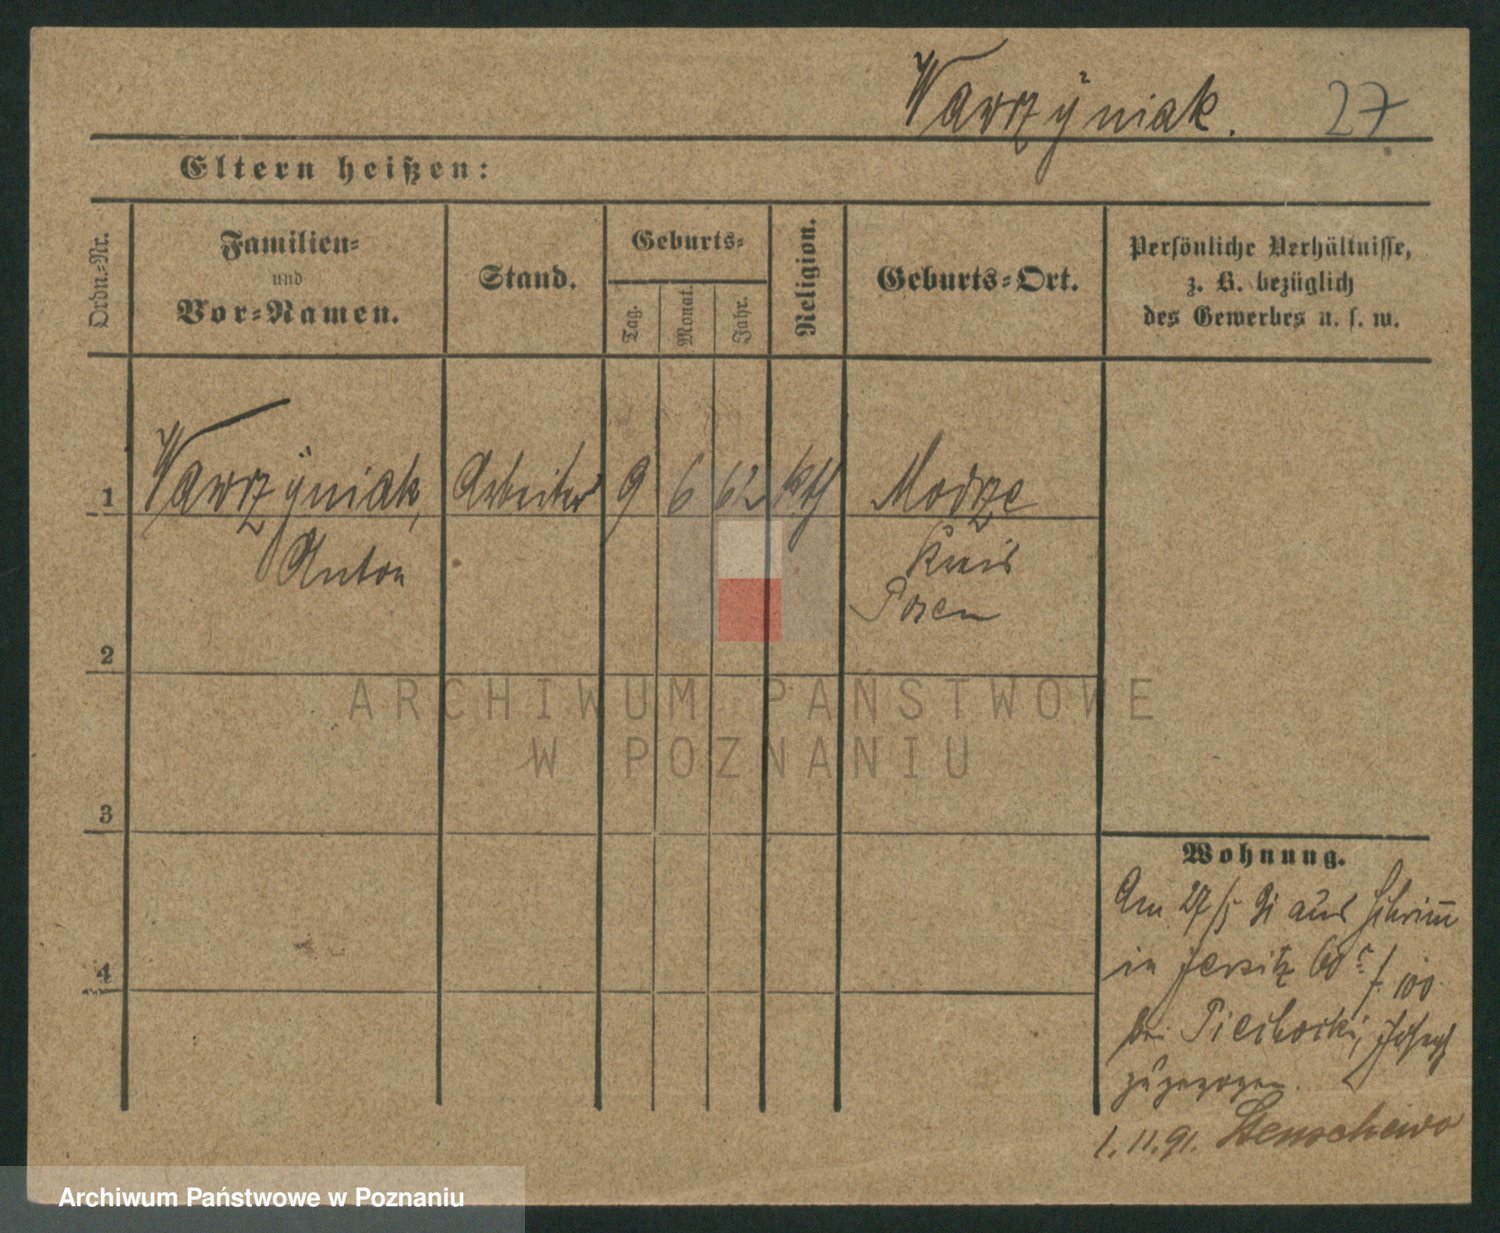 Wawrzÿniak. 27
Eltern heißen:
Ordn.=Nr.
Familien=
und
Vor=Namen.
Stand.
Geburts=
Tag.
Monat.
Jahr.
Religion.
Geburts=Ort.
Persönliche Verhältnisse,
z. B. bezüglich
des Gewerbes u. s. w.
1 Wawrzÿniak, Arbeiter 9 6 62 kth Modrze
Anton Kreis
Posen
2
ARCHIWUM PAŃSTWOWE
W POZNANIU
3
4
Wohnung.
Am 27/5 91 aus Schrimm
in Jersitz 60 100
bei Piechocki, Joseph
zugezogen.
1.11.91. Stenschewo
Archiwum Państwowe w Poznaniu